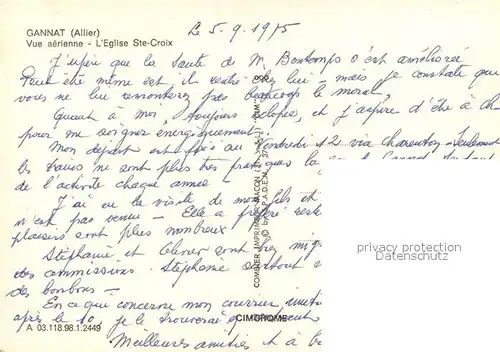 GANNAT (Allier)
Vue aérienne - L'Eglise Ste-Croix
Le 5.9.1975
J'espère que la santé de M. Bontemps s'est améliorée
Peut être même est il rentré chez lui - mais je constate que
vous ne lui remonterez pas beaucoup le moral,
Quant à moi, toujours éclopée, et j'aspire d'être à Ch
pour me soigner énergiquement
Mon départ est fixé au Vendredi 12 via Charenton - Seulement
les trains ne sont plus très pratiques
de l'activité chaque année
J'ai eu la visite de mon fils et
n'est pas venue - Elle a préféré
plaisirs sont plus nombreux
Stéphanie et Olivier sont très mig
des commissions. Stéphanie surtout
des bonbons -
En ce qui concerne mon courrier,
après le 10, je le trouverai
Meilleures amitiés et à b
COMBIER IMPRIMEUR MACON
CIMCHROME
A 03.118.98.1.2449
privacy protection
Datenschutz